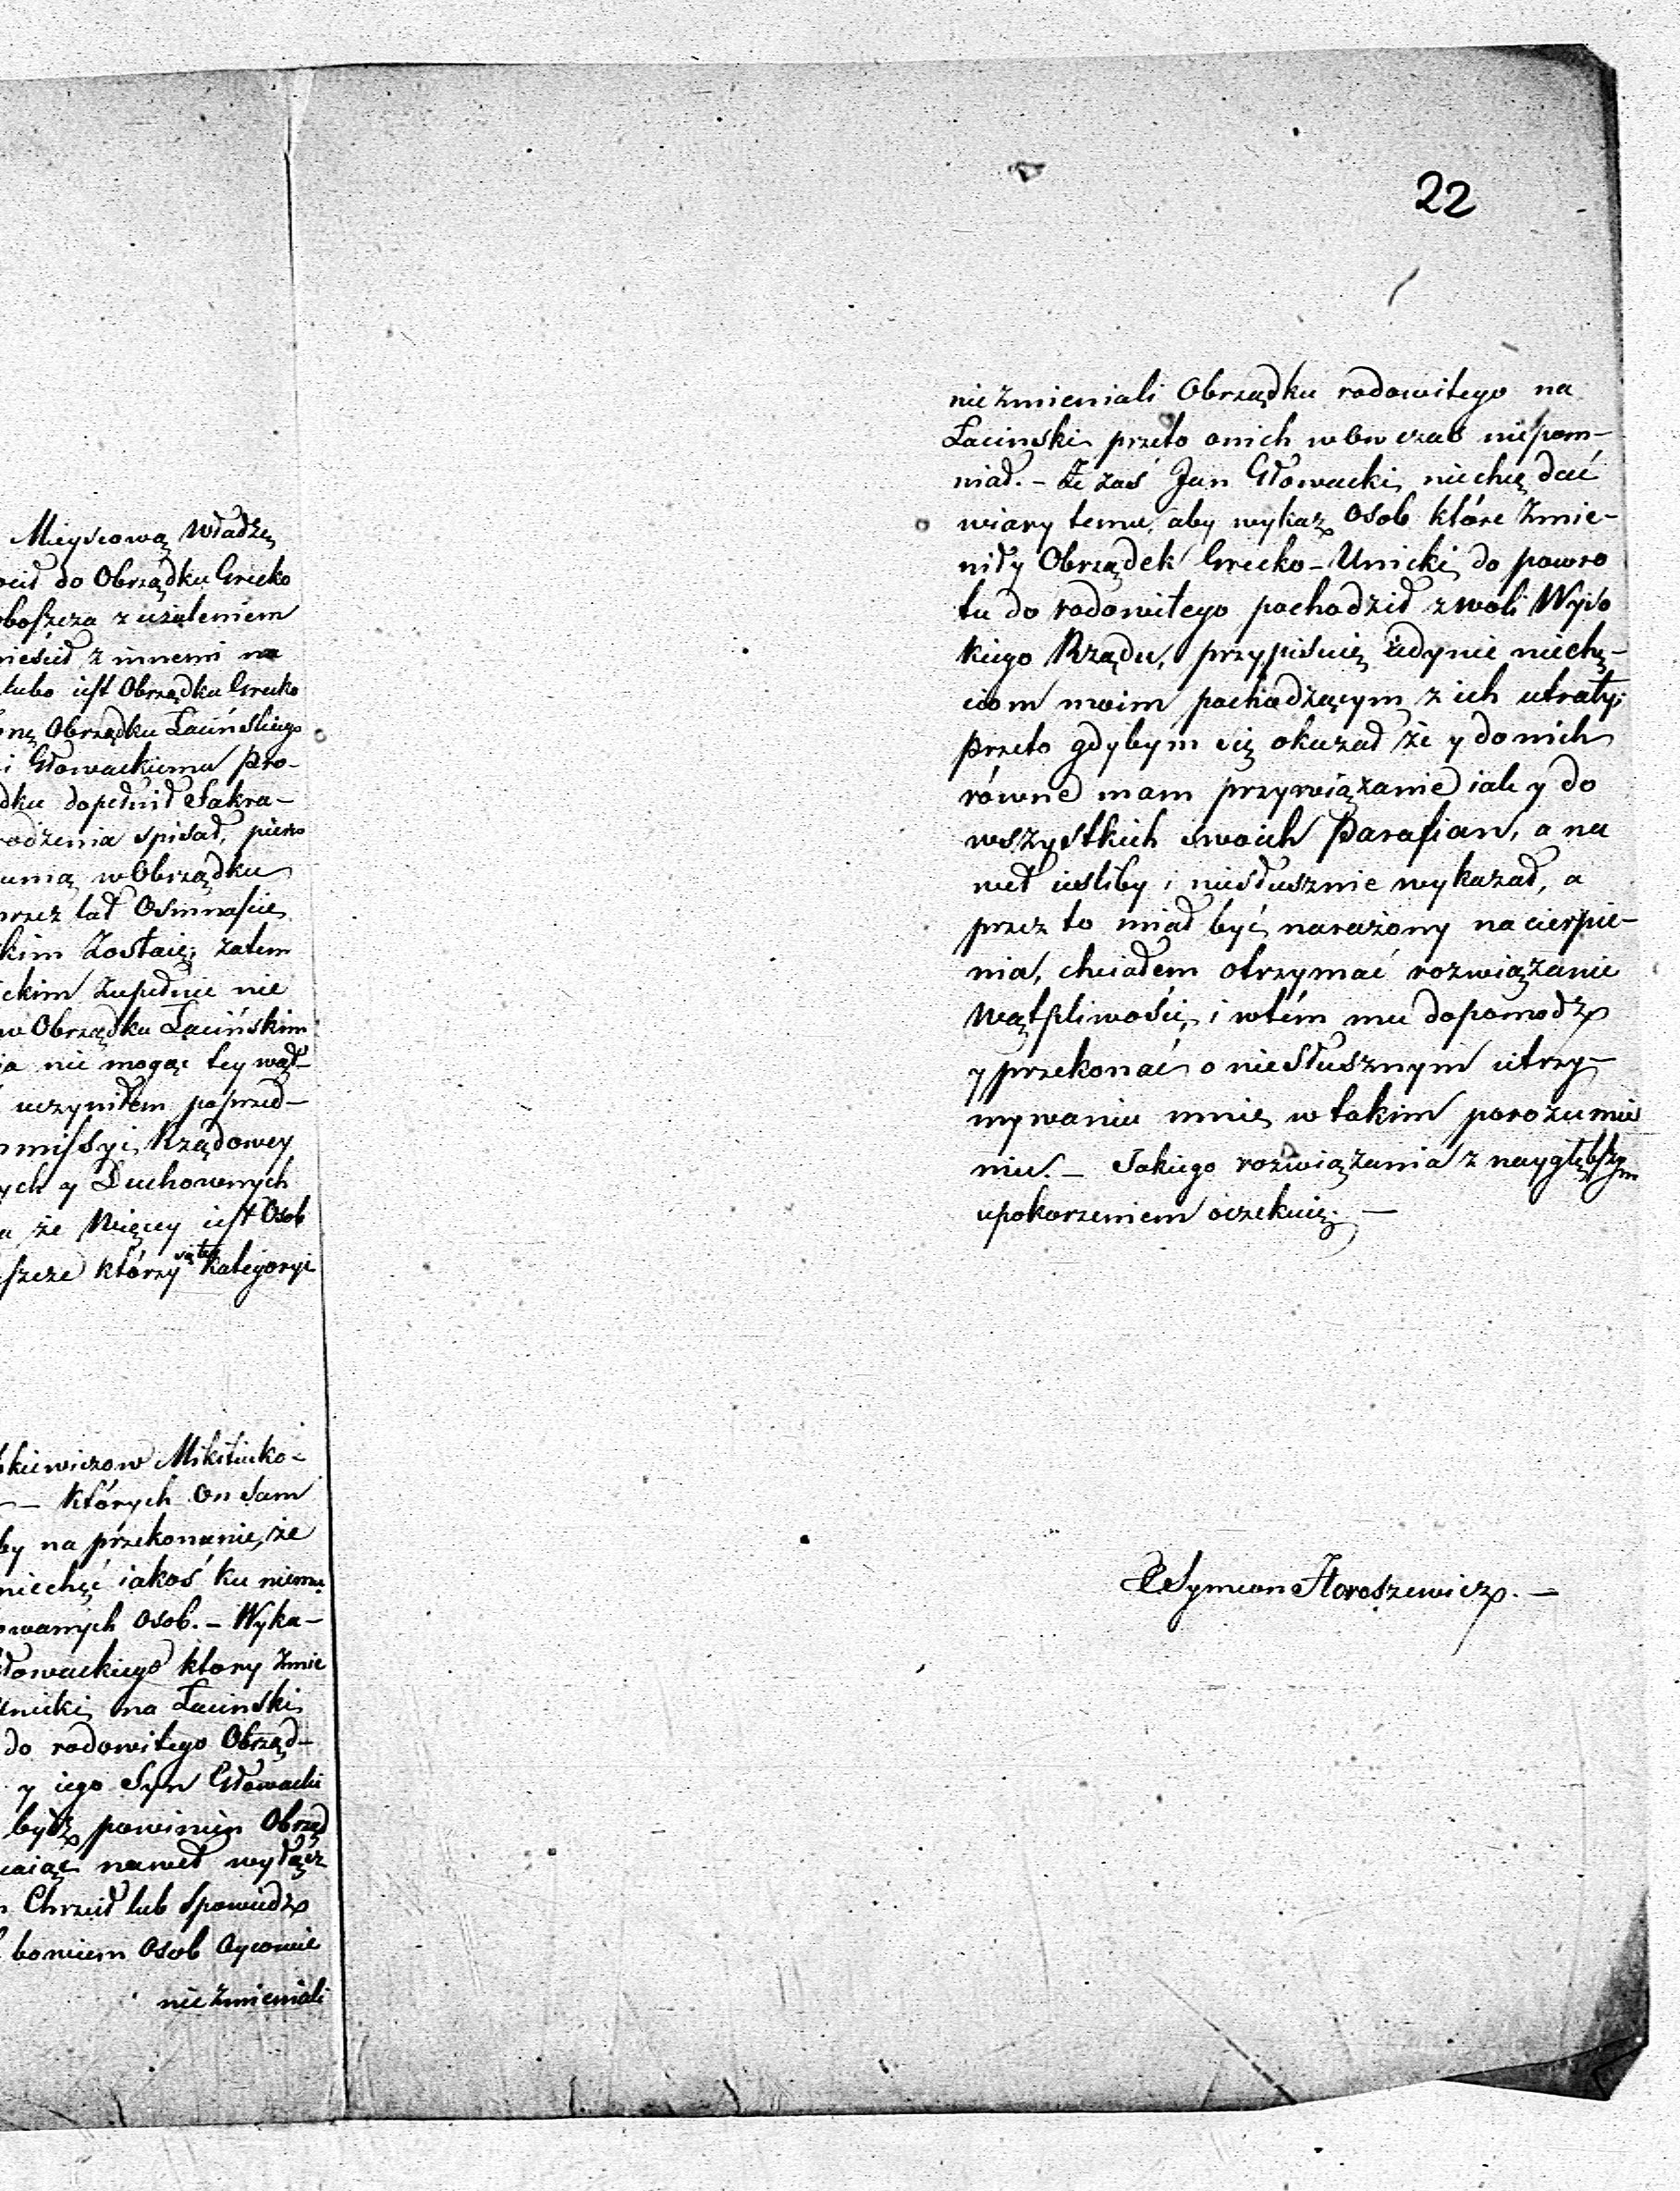 Mieyscową Władzę
ocił do Obrządku Grecko
boszcza z użaleniem
mieścił z innemi na
lubo iest Obrządku Grecko
onę Obrządku Łacińskiego
i Głowackiemu Pro-
dku dopełnił Sakra-
rodzenia spisał, pierw
unią w Obrządku
przez lat Osmnaście
kim zostaię; zatem
ckim zupełnie nie
w Obrządku Łacińskim
ia nie mogąc tey wąt-
uczyniłem poprzed-
mmissyi Rządowey
ych y Duchownych
a że Więcey iest Osob
szcze którzy są tey Kategoryi
skiewiczow Mikitiuko-
– Których On Sam
by na przekonanie, że
niechęć iakoś ku niemu
owanych Osob. – Wyka-
Głowackiego ktory zmie
Unicki na Łacinski
do rodowitego Obrząd-
y iego Syn Głowacki
bydź powinien Obrząd
caiąc nawet wyłącz
Chrzcił lub Spowiedź
bowiem Osob Oycowie
nie zmieniali
22
nie zmieniali Obrządku rodowitego na
Łacinski przeto onich wówczas niepom-
niał. – Że zaś Jan Głowacki, niechcę dać
wiary temu, aby wykaz Osob które zmie-
niły Obrządek Grecko-Unicki, do powro
tu do rodowitego pochodził z woli Wyso
kiego Rządu, przypisuię iedynie niechę-
ciom moim pochodzącym z ich utraty;
przeto gdybym się okazał że y do nich
równe mam przywiązanie iak y do
wszystkich swoich Parafian, a na
wet iesliby i niesłusznie wykazał, a
przez to miał być narażony na cierpie-
nia, chciałem otrzymać rozwiązanie
Wątpliwości, i w tém mu dopomodz
y przekonać o niesłusznym utrzy-
mywaniu mnie w takim porozumie
niu. – Jakiego rozwiązania z naygłębszym
upokorzeniem oczekuię. –
X Symeon Horoszewicz. –